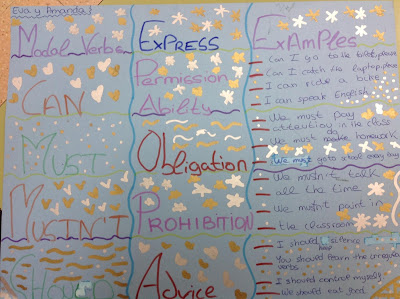 Eva y Amanda
Modal Verbs
EXPRESS
ExAmPles
Permission
Can I go to the toilet, please
Can I catch the laptop, please
CAN
Abilty
I can ride a bike
I can speak English
MUST
Obligation
We must pay
attention in the class
We must do homework
We must go to school every day
MUSTN'T
PROHIBITION
We mustn't talk
all the time
We mustn't paint in
the classroom
Should
Advice
I should silence
You should learn the irregular
verbs
I should control myself
We should eat food